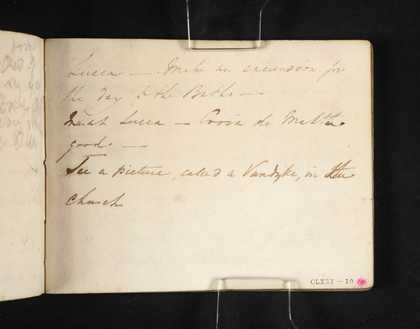 Lucca — Make an excursion for
the day to the Baths —
at Lucca — Croix de Malthe
good —
See a picture, called a Vandyke, in the
church
CLXXI - 10